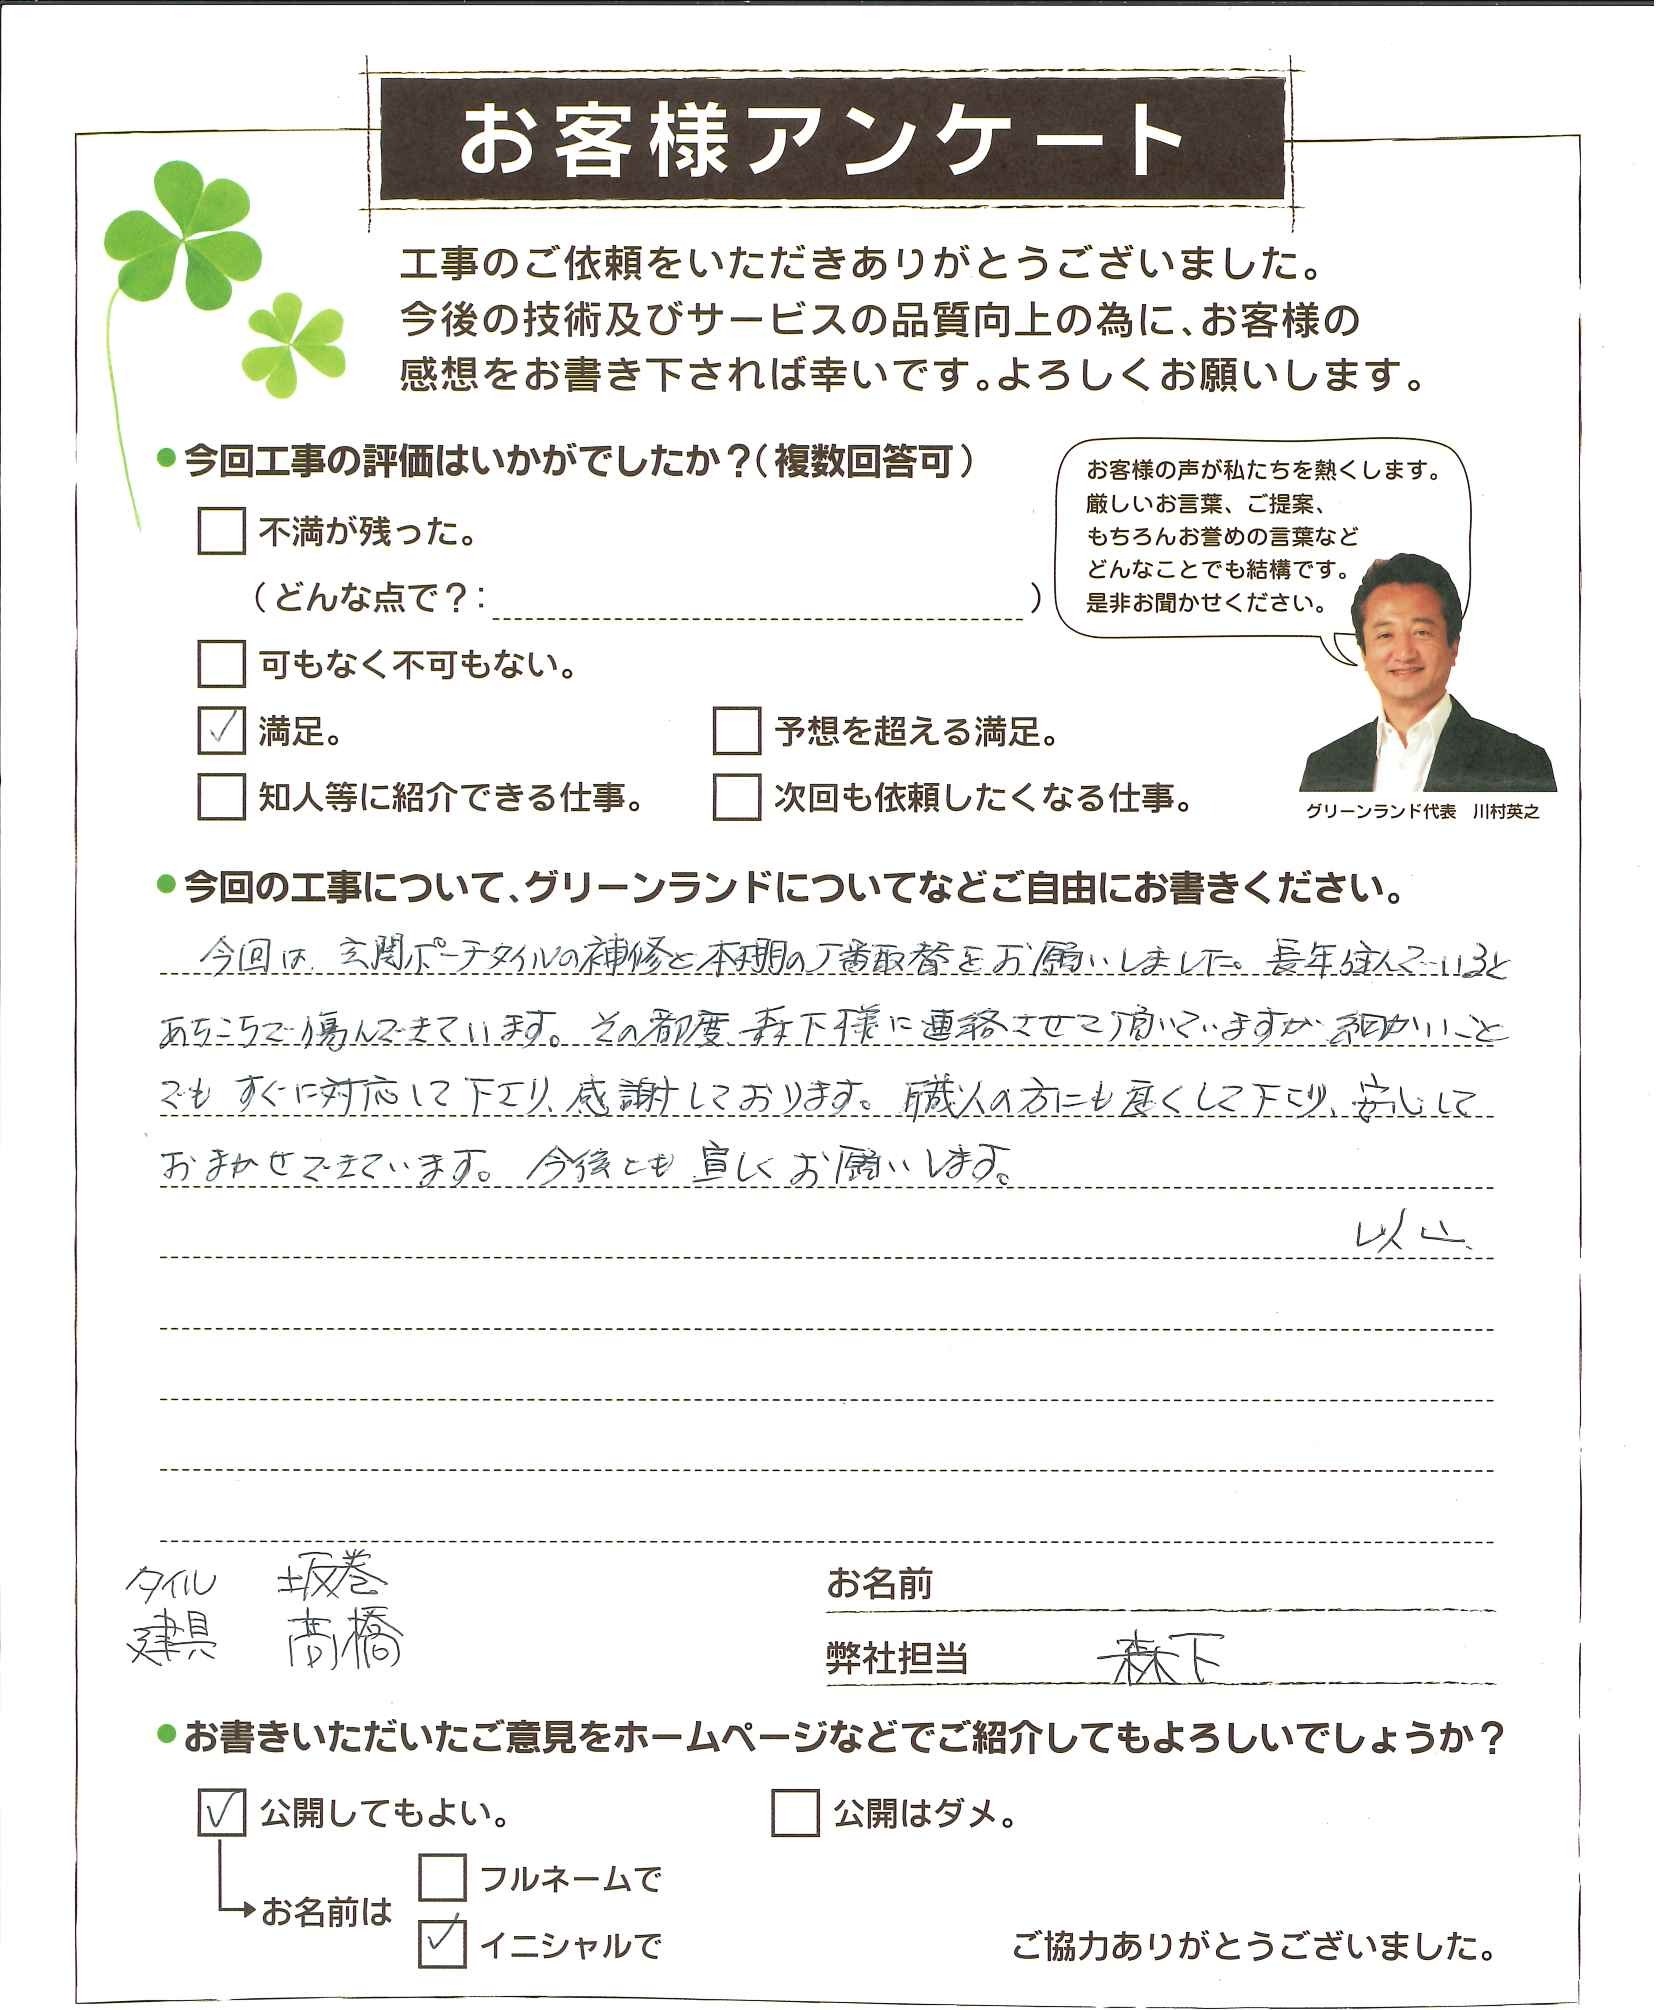 お客様アンケート
工事のご依頼をいただきありがとうございました。
今後の技術及びサービスの品質向上の為に、お客様の
感想をお書き下されば幸いです。よろしくお願いします。
●今回工事の評価はいかがでしたか?(複数回答可)
不満が残った。
(どんな点で?: )
可もなく不可もない。
満足。 予想を超える満足。
知人等に紹介できる仕事。 次回も依頼したくなる仕事。
お客様の声が私たちを熱くします。
厳しいお言葉、ご提案、
もちろんお誉めの言葉など
どんなことでも結構です。
是非お聞かせください。
グリーンランド代表 川村英之
●今回の工事について、グリーンランドについてなどご自由にお書きください。
今回は、玄関ポーチタイルの補修と本棚の丁番取替をお願いしました。長年住んでいると
あちこちで傷んできています。その都度、森下様に連絡させて頂いていますが、細かいこと
でも すぐに対応して下さり、感謝しております。職人の方にも良くして下さり、安心して
おまかせできています。今後とも 宜しくお願いします。
以上.
タイル 坂巻
建具 高橋
お名前
弊社担当 森下
●お書きいただいたご意見をホームページなどでご紹介してもよろしいでしょうか?
公開してもよい。 公開はダメ。
お名前は
フルネームで
イニシャルで
ご協力ありがとうございました。